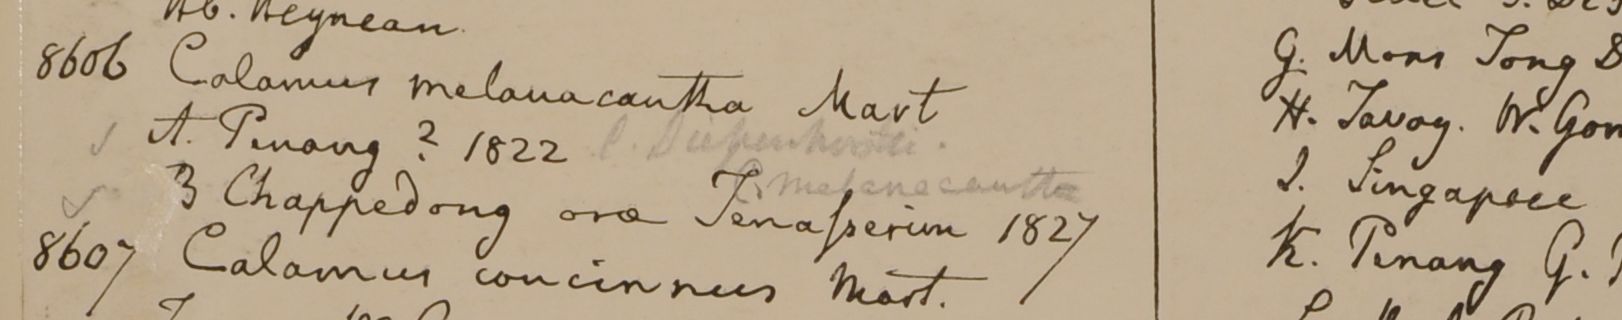 Hb. Heynean.
8606 Calamus melanacantha Mart
A. Pinang ? 1822 C. Diepenhorstii.
C. melanacantha
B Chappedong oræ Tenasserim 1827
8607 Calamus concinnus Mart.
G. Mons Tong
H. Tavoy. W. Gom
I. Singapore
K. Pinang G.